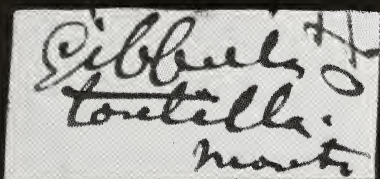 Gibbula
tortilla.
Monts